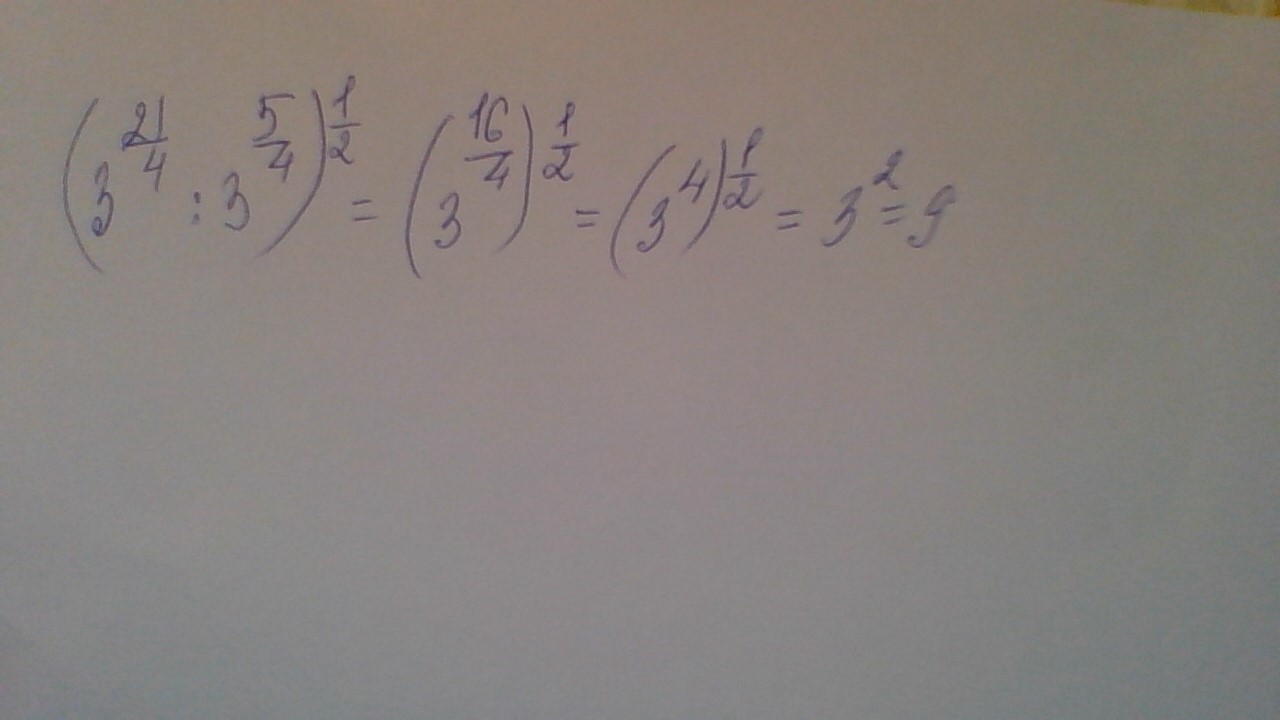 (3^{21/4} : 3^{5/4})^{1/2} = (3^{16/4})^{1/2} = (3^4)^{1/2} = 3^2 = 9